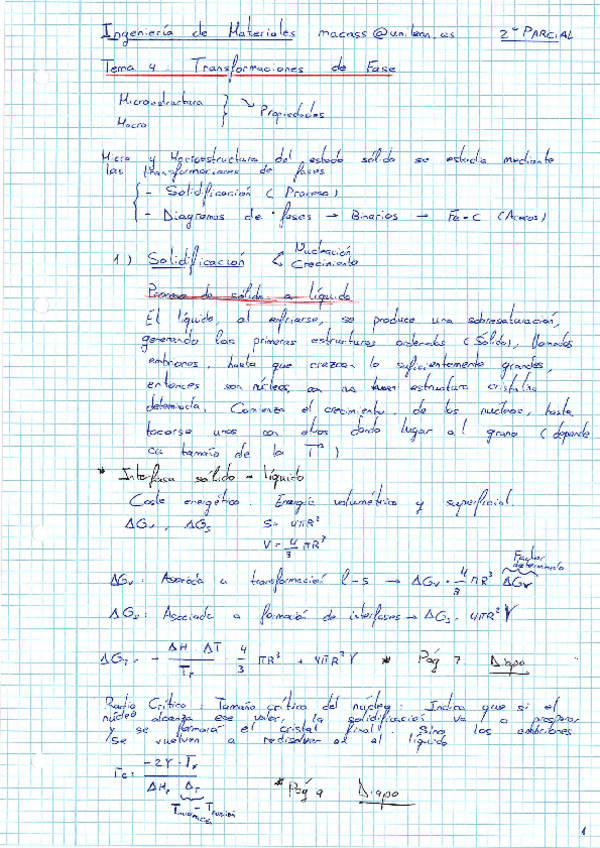 Ingeniería de Materiales macass@unileon.es 2º PARCIAL
Tema 4 : Transformaciones de Fase
Microestructura
Macro
Propiedades
Micro y Macroestructura del estado sólido se estudia mediante
las transformaciones de fases
- Solidificación ( Proceso)
- Diagramas de fases → Binarios → Fe-C (Aceros)
1 ) Solidificación
Nucleación
Crecimiento
Proceso de sólido a líquido
El líquido al enfriarse, se produce una sobresaturación,
generando las primeras estructuras ordenadas (Sólido), llamados
embriones, hasta que crezcan lo suficientemente grandes,
entonces son núcleos, con una estructura cristalina
determinada. Comienza el crecimiento de los núcleos, hasta
tocarse unos con otros dando lugar al grano (depende
tamaño de la Tª )
* Interfase sólido - líquido
Coste energético. Energía volumétrica y superficial.
ΔGv , ΔGs S= 4πR²
V= 4/3 πR³
Factor
determinante
ΔGv: Asociada a transformación l-s → ΔGv = 4/3 πR³ ΔGv
ΔGs: Asociada a formación de interfases → ΔGs = 4πR² γ
ΔGT = - ΔH · ΔT / Tf · 4/3 πR³ + 4πR² γ * Pág 7 Diapo
Radio Crítico : Tamaño crítico del núcleo : Indica que si el
núcleo alcanza ese valor, la solidificación va a prosperar
y se formará el cristal final. Sino los embriones
se vuelven a redisolver en el líquido
rc = -2γ · Tf / ΔHf ΔT
* Pág 9 Diapo
1